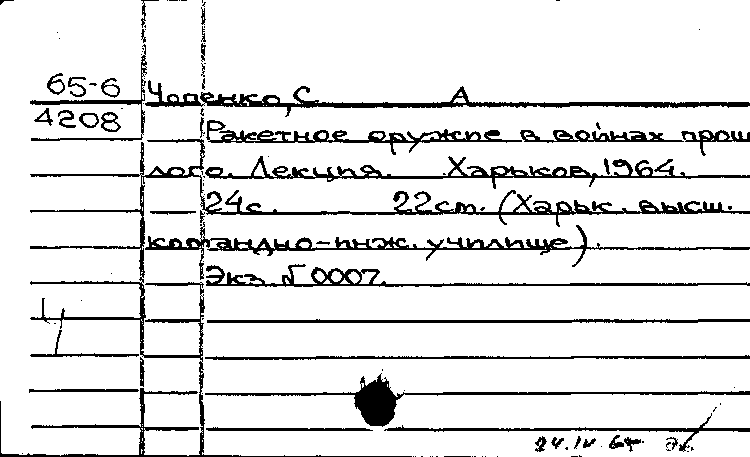 65-6 Чопенко, С А
4208 Ракетное оружие в войнах прош
лого. Лекция. Харьков, 1964.
24с. 22см. (Харьк. высш.
командно-инж. училище).
Экз. № 0007.
Ч
24.IV 64